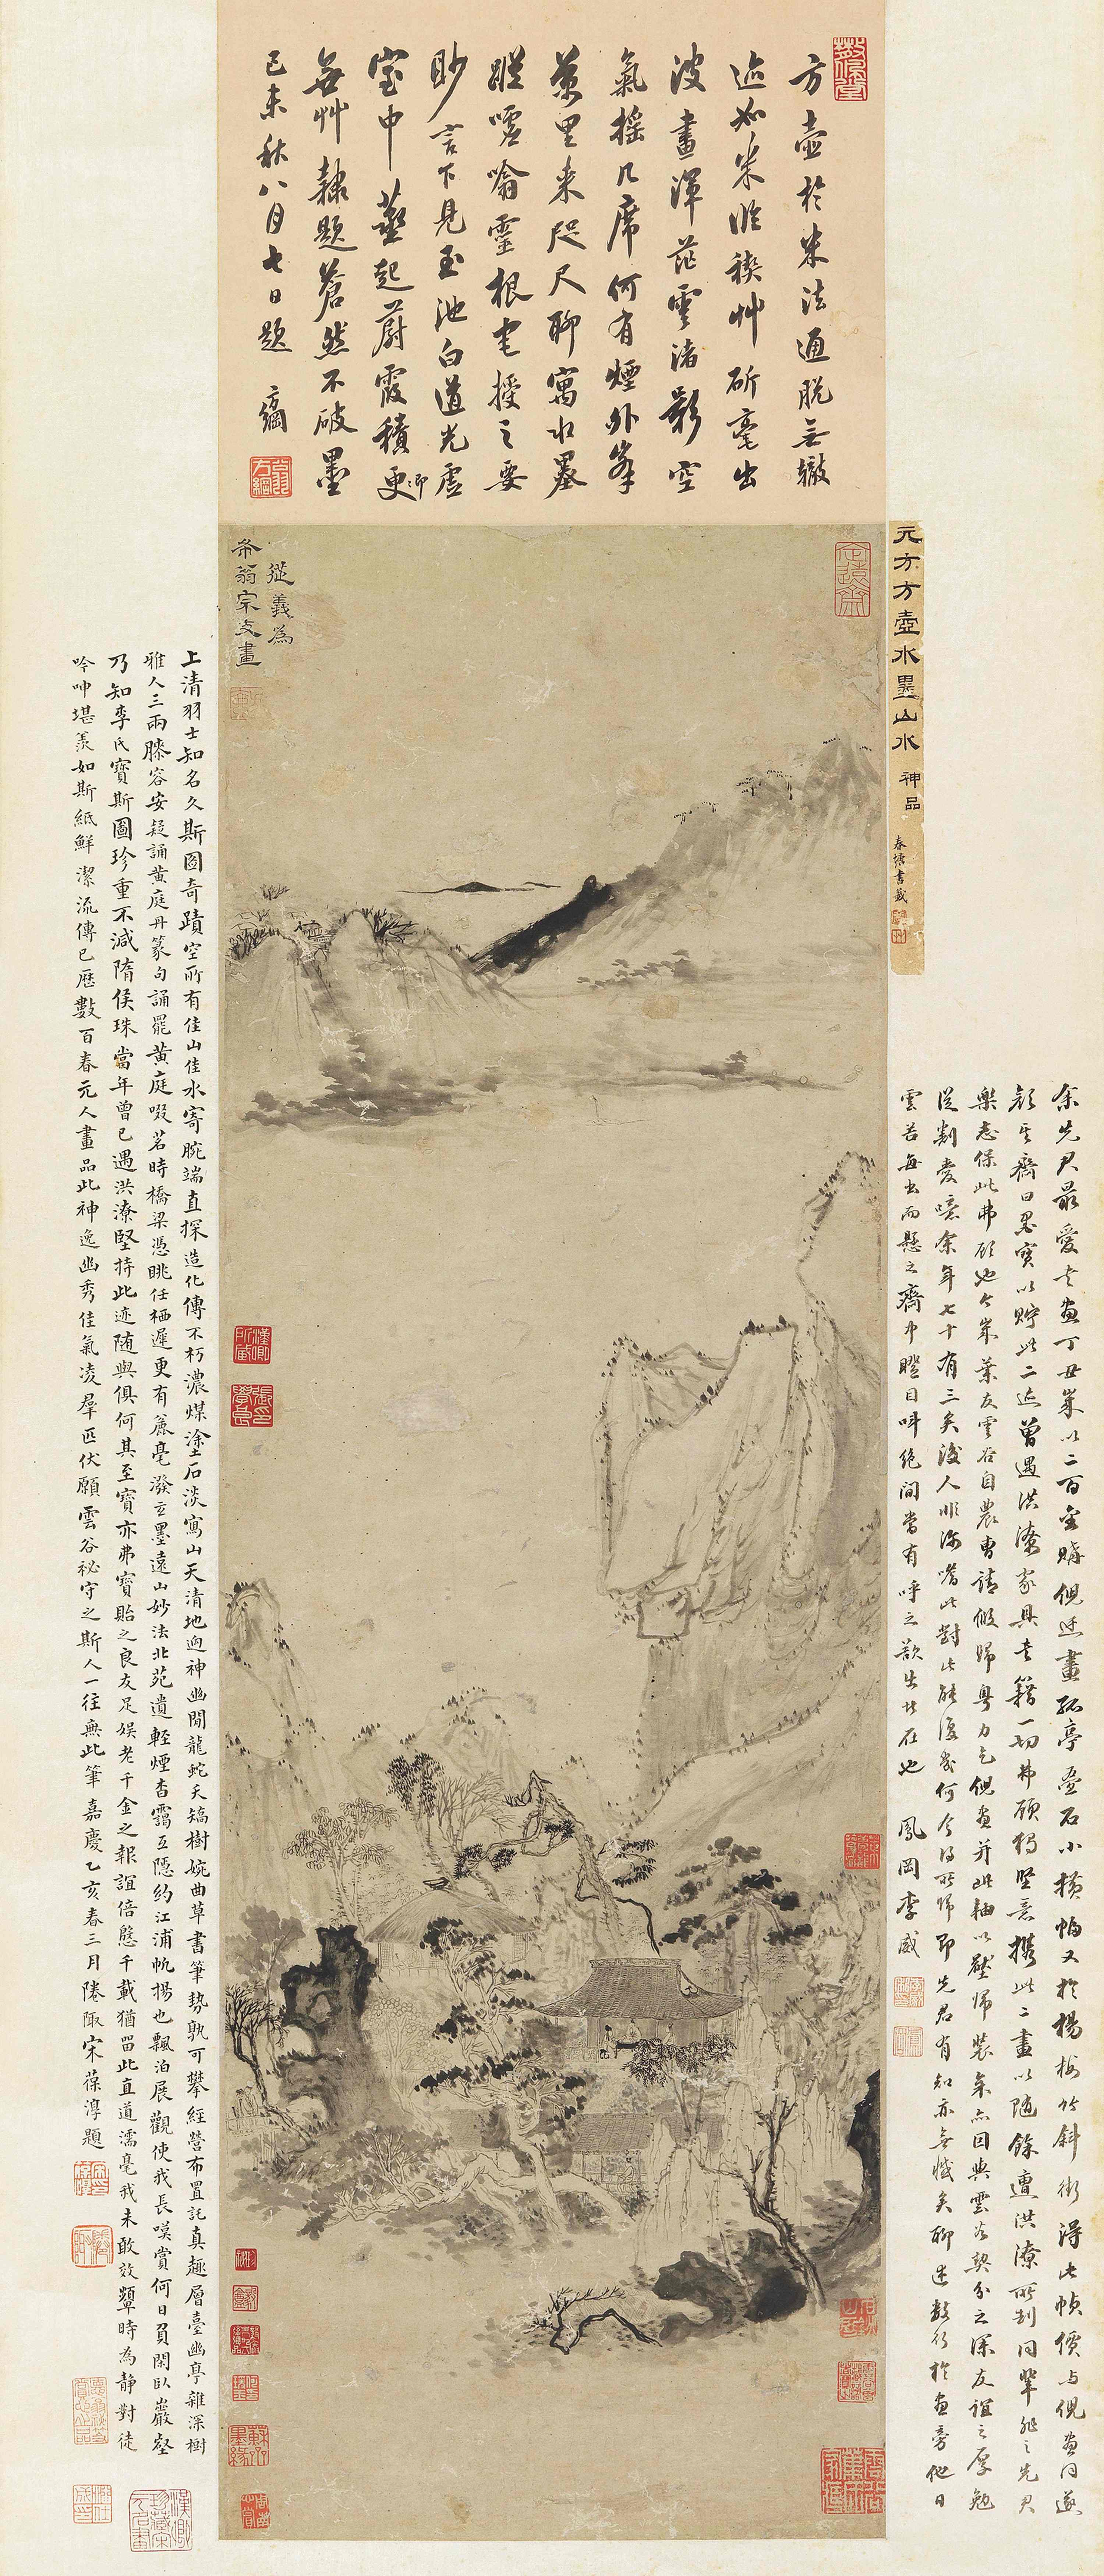 方壺於米法通脫無轍
迹如米臨稧艸斫毫出
波畫渾茫雲渚影空
氣搖几席何有煙外峯
萬里来咫尺聊寓水墨
蹤噓噏靈根宅授之要
眇言下見玉池白道光虛
室中蒸起蔚霞積更
無艸隸題蒼然不破墨
己未秋八月七日題 方綱
翁方綱
從義為
希翁宗丈畫
元方方壺水墨山水 神品
春塘書籤
余先君最愛書畫丁丑歲以二百金購倪迂畫孤亭疊石小橫幅又於楊梅竹斜街得此幀價與倪畫同遂
顏其齋曰墨寶以貯此二迹曾遇洪潦家具書籍一切弗顧獨堅意攜此二畫以隨餘遭洪潦所制同輩非之先君
樂志保此弗顧也今歲葉友雲谷自農曹請假歸粤力乞倪畫并此軸以壓歸裝余亦因與雲谷契分之深友誼之厚勉
從割愛噫余年七十有三矣後人非深嗜此對此能復幾何今得所歸即先君有知亦無憾矣聊述數行於畫旁他日
雲谷每出而懸之齋中瞪目叫絕間當有呼之欲出者在也 鳳岡李威
上清羽士知名久斯圖奇蹟空所有佳山佳水寄腕端直探造化傳不朽濃煤塗石淡寫山天清地迥神幽閒龍蛇夭矯樹婉曲草書筆勢孰可攀經營布置託真趣層臺幽亭雜深樹
雅人三兩膝容安疑誦黃庭丹篆句誦罷黃庭啜茗時橋梁憑眺任栖遲更有蒹毫潑立墨遠山妙法北苑遺輕煙杳靄互隱約江浦帆揚也飄泊展觀使我長嘆賞何日負閑臥巖壑
乃知李氏寶斯圖珍重不減隋侯珠當年曾已遇洪潦堅持此迹随與俱何其至寶亦弗寶貽之良友足娛老千金之報誼倍慇千載猶留此直道濡毫我未敢效顰時為靜對徒
吟呻堪羨如斯紙鮮潔流傳已歷數百春元人畫品此神逸幽秀佳氣凌羣匹伏願雲谷祕守之斯人一往無此筆 嘉慶乙亥春三月陸陬宋葆淳題